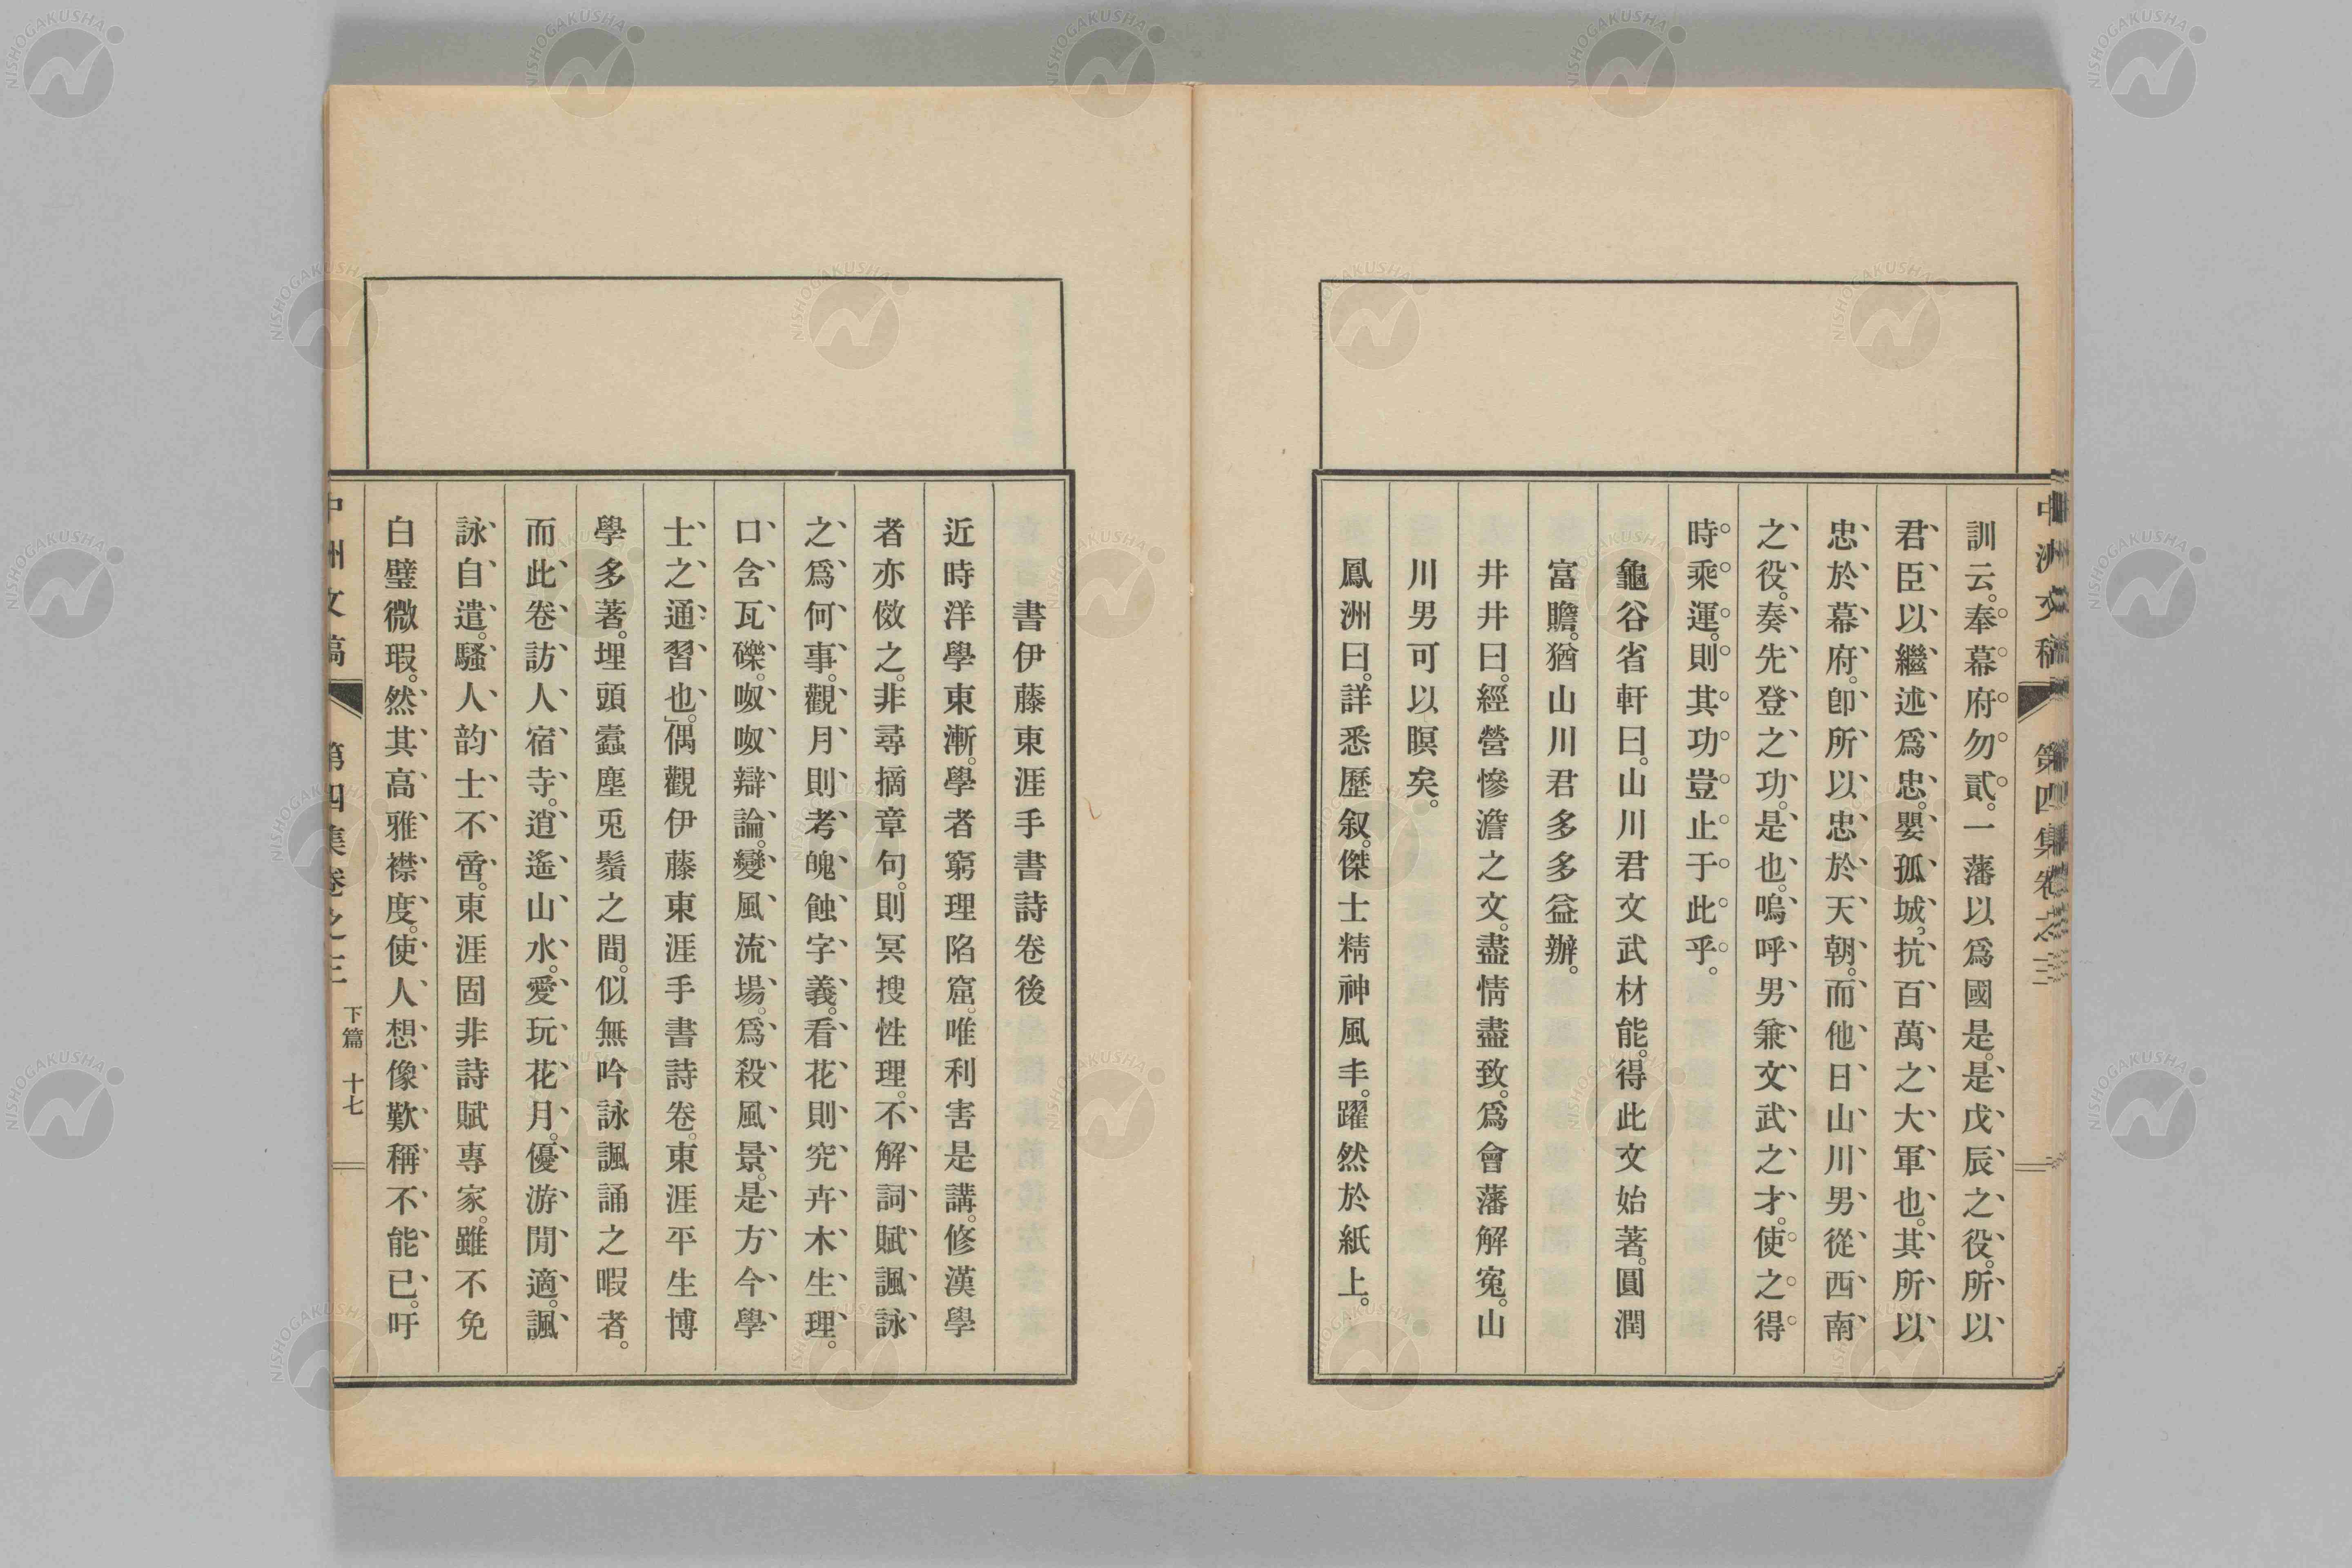 中洲文稿 第四集卷之三
訓云。奉幕府勿貳。一藩以爲國是。是戊辰之役。所以
君臣以繼述爲忠。嬰孤城、抗百萬之大軍也。其所以
忠於幕府。卽所以忠於天朝。而他日山川男從西南
之役。奏先登之功。是也。嗚呼男兼文武之才。使之得
時乘運。則其功豈止于此乎。
龜谷省軒曰。山川君文武材能。得此文始著。圓潤
富贍。猶山川君多多益辦。
井井曰。經營慘澹之文。盡情盡致。爲會藩解寃。山
川男可以瞑矣。
鳳洲曰。詳悉歷叙。傑士精神風丰。躍然於紙上。
書伊藤東涯手書詩卷後
近時洋學東漸。學者窮理陷窟。唯利害是講。修漢學
者亦傚之。非尋摘章句。則冥搜性理。不解詞賦諷詠
之爲何事。觀月則考魄蝕字義。看花則究卉木生理。
口含瓦礫。呶呶辯論。變風流場。爲殺風景。是方今學
士之通習也。」偶觀伊藤東涯手書詩卷。東涯平生博
學多著。埋頭蠹塵兎鬚之間。似無吟詠諷誦之暇者。
而此卷訪人宿寺。逍遙山水。愛玩花月。優游閒適。諷
詠自遣。騷人韵士不啻。東涯固非詩賦專家。雖不免
白璧微瑕。然其高雅襟度。使人想像歎稱不能已。吁
中洲文稿 第四集卷之三 下篇 十七
NISHOGAKUSHA